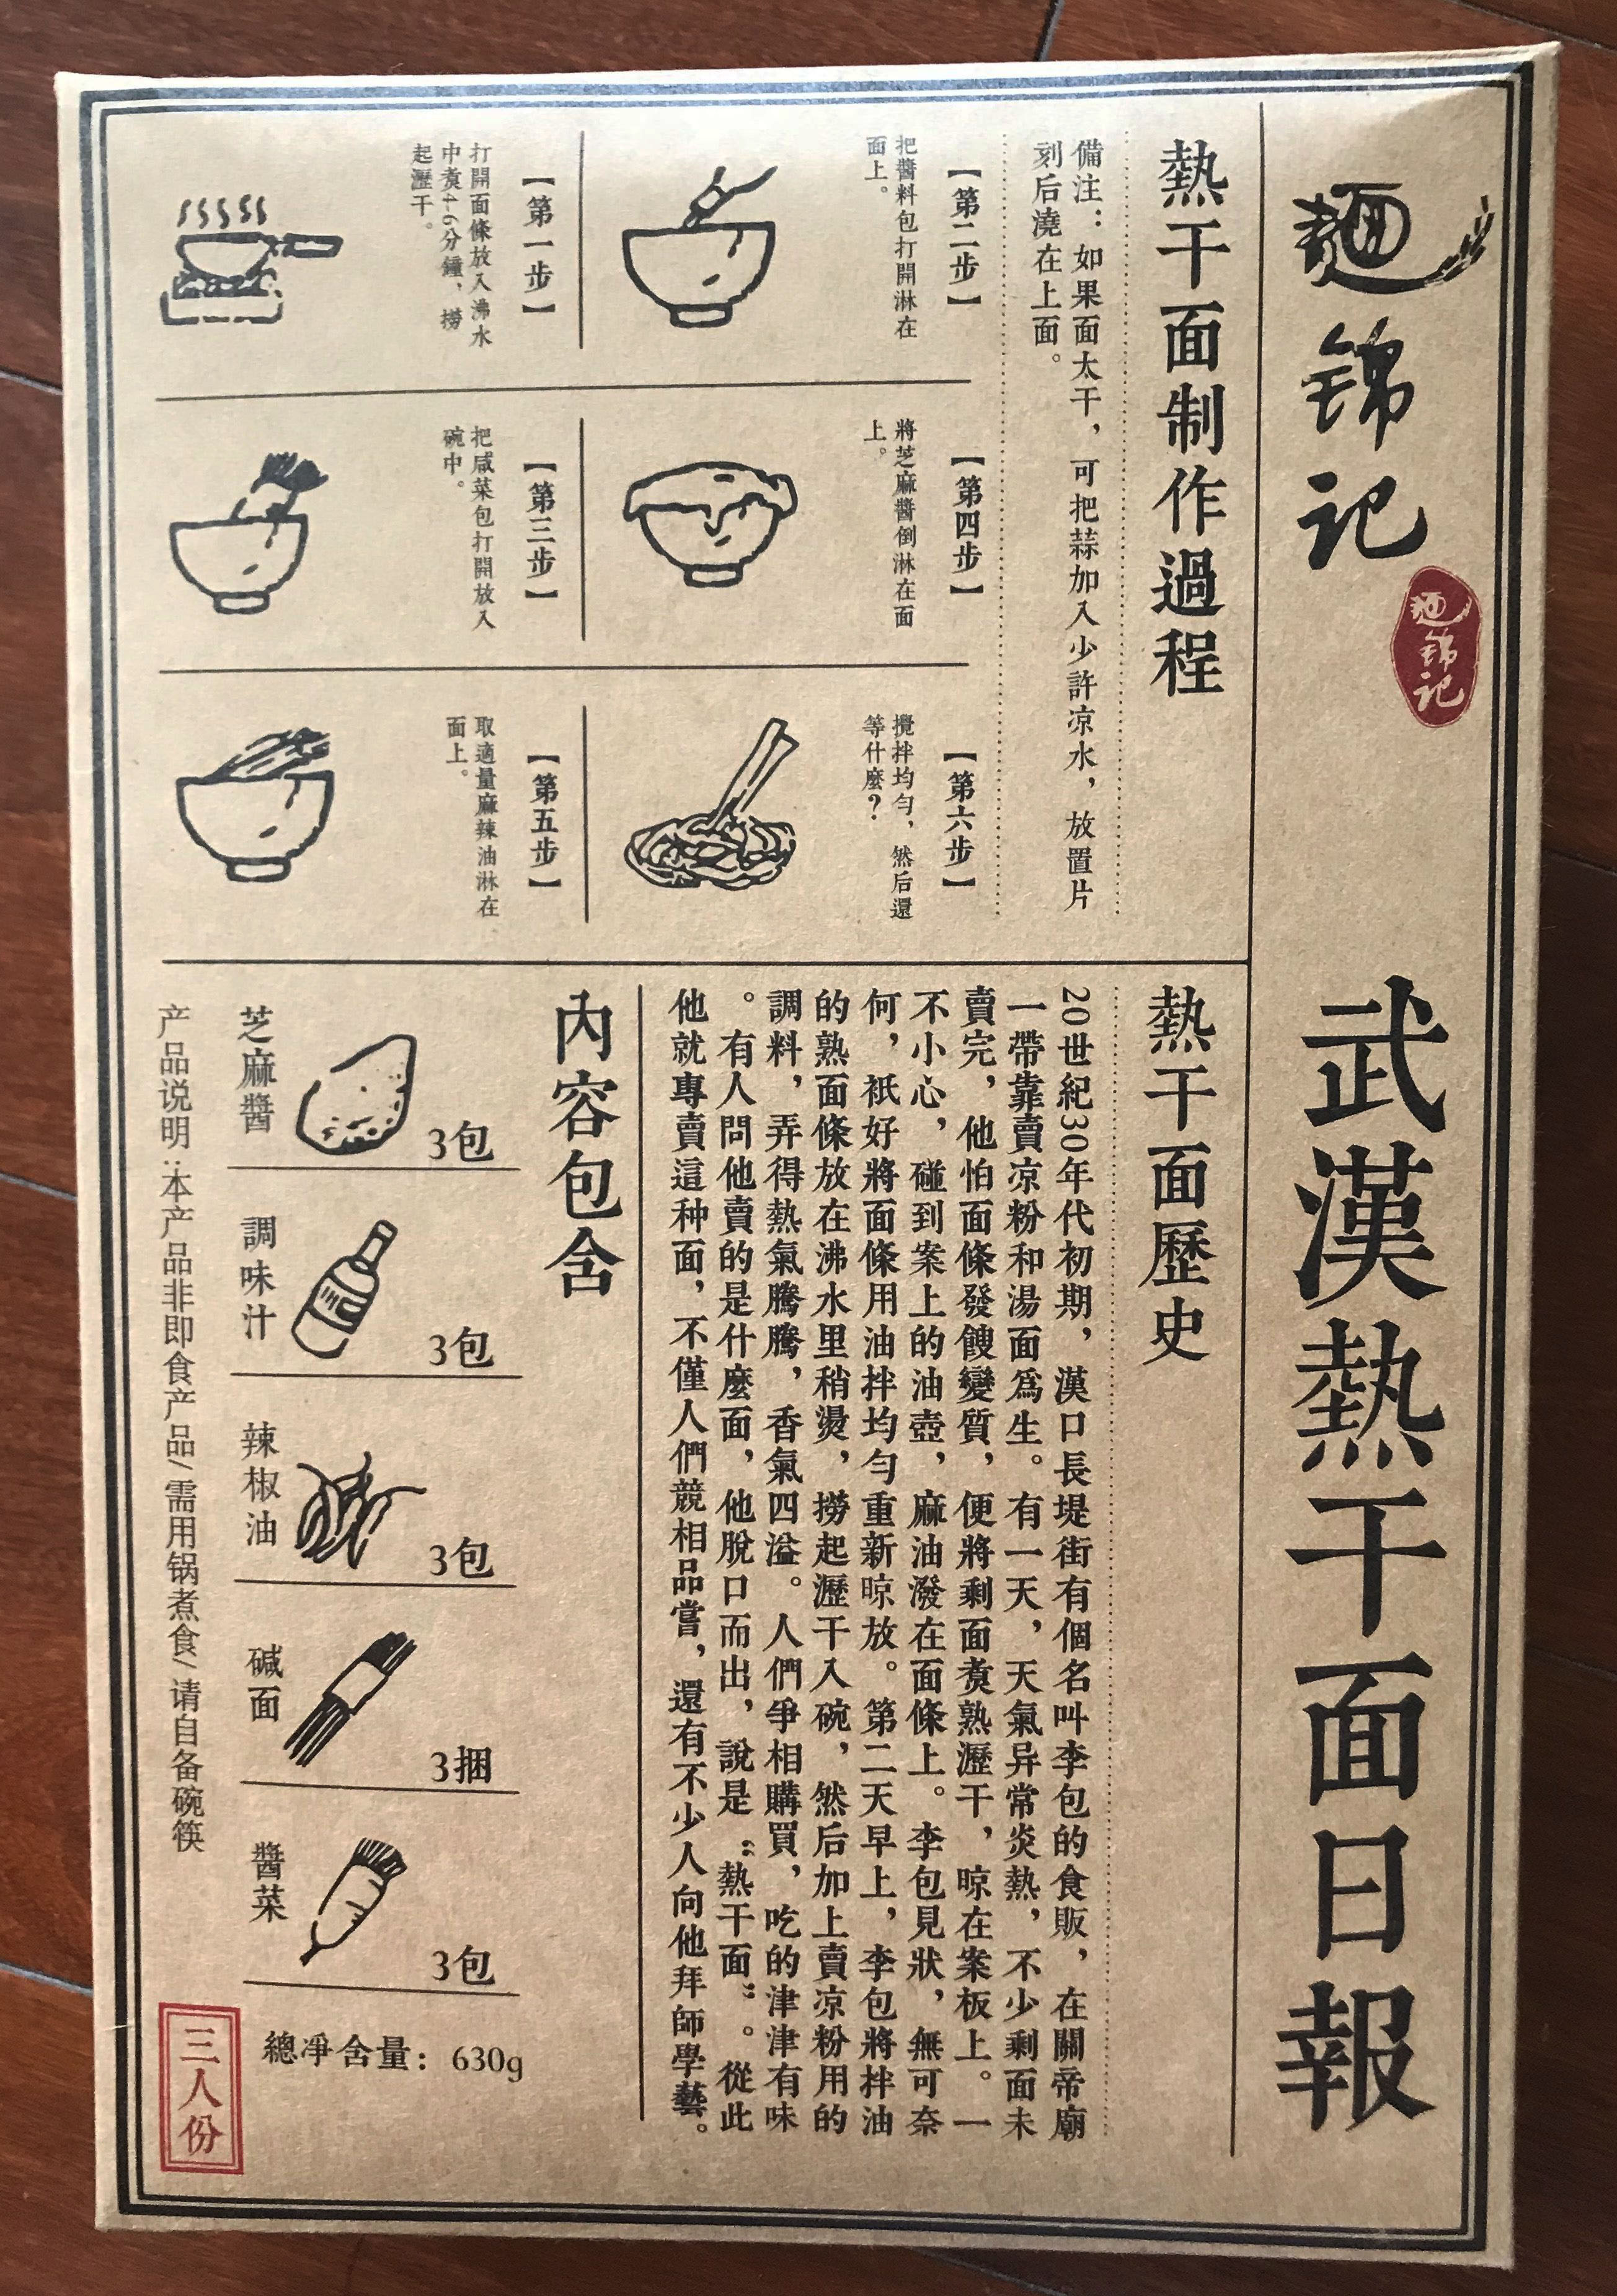 麵锦记
麵锦记
武漢熱干面日報
熱干面制作過程
備注：如果面太干，可把蒜加入少許凉水，放置片
刻后澆在上面。
【第一步】
打開面條放入沸水
中煮4-6分鐘、撈
起瀝干。
【第二步】
把醬料包打開淋在
面上。
【第三步】
把咸菜包打開放入
碗中。
【第四步】
將芝麻醬倒淋在面
上。
【第五步】
取適量麻辣油淋在
面上。
【第六步】
攪拌均勻，然后還
等什麼？
熱干面歷史
20世紀30年代初期，漢口長堤街有個名叫李包的食販，在關帝廟
一帶靠賣凉粉和湯面爲生。有一天，天氣异常炎熱，不少剩面未
賣完，他怕面條發餿變質，便將剩面煮熟瀝干，晾在案板上。一
不小心，碰到案上的油壺，麻油潑在面條上。李包見狀，無可奈
何，祇好將面條用油拌均勻重新晾放。第二天早上，李包將拌油
的熟面條放在沸水里稍燙，撈起瀝干入碗，然后加上賣凉粉用的
調料，弄得熱氣騰騰，香氣四溢。人們爭相購買，吃的津津有味
。有人問他賣的是什麼面，他脫口而出，說是“熱干面”。從此
他就專賣這种面，不僅人們競相品嘗，還有不少人向他拜師學藝。
內容包含
芝麻醬
3包
調味汁
3包
辣椒油
3包
碱面
3捆
醬菜
3包
總凈含量：630g
产品说明：本产品非即食产品/需用锅煮食/请自备碗筷
三人份